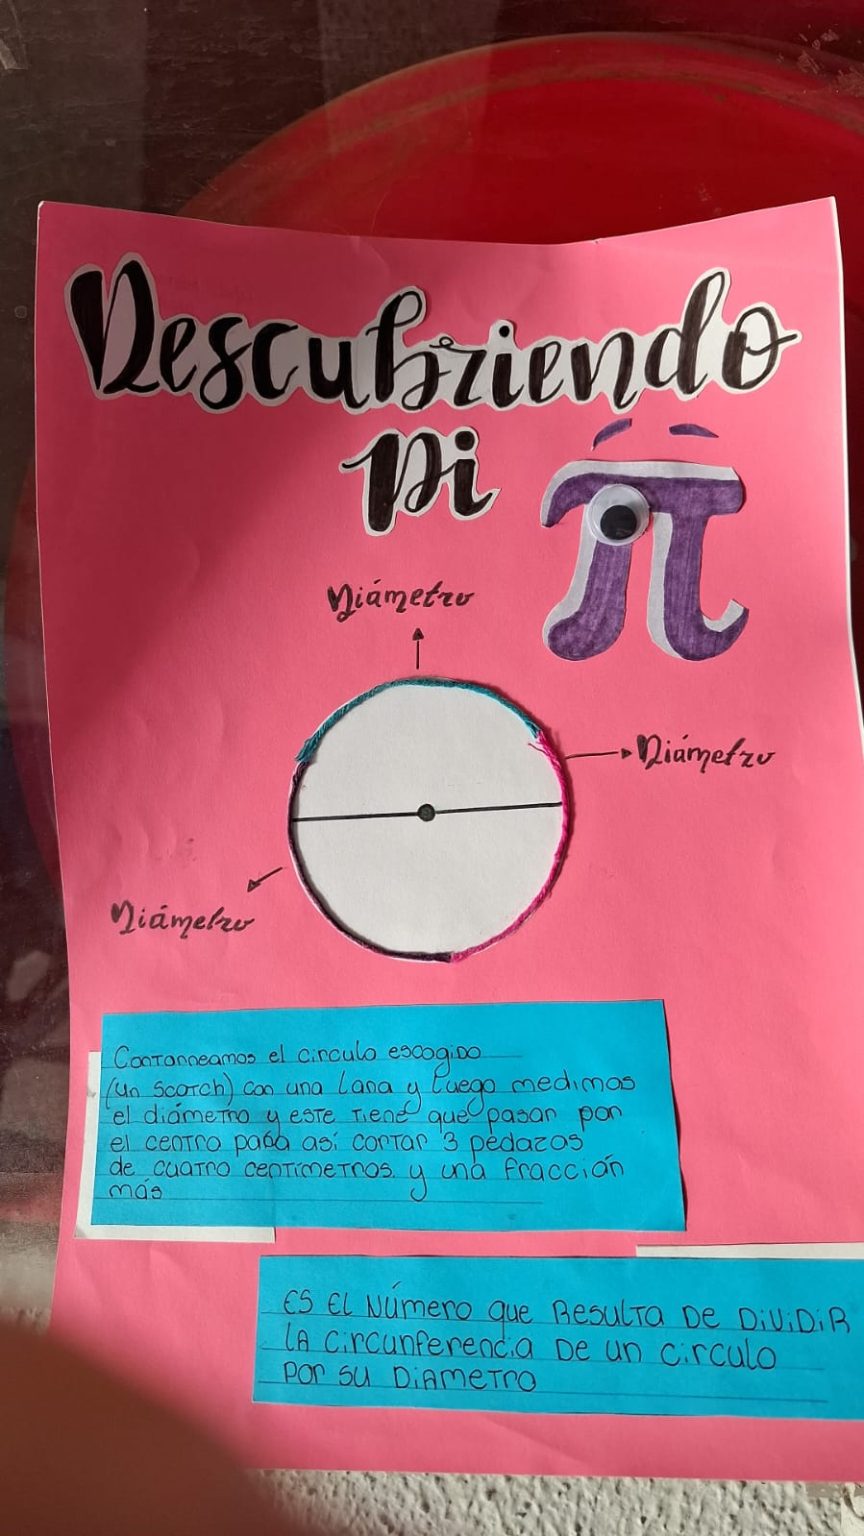 Descubriendo
Pi
π
Diámetro
Diámetro
Diámetro
Contorneamos el circulo escogido
(un scotch) con una lana y luego medimos
el diámetro y este tiene que pasar por
el centro para así cortar 3 pedazos
de cuatro centímetros y una fracción
más
ES EL NÚMERO que RESULTA DE DiViDiR
LA CircunFerencia DE un circulo
por su DiAMETRO